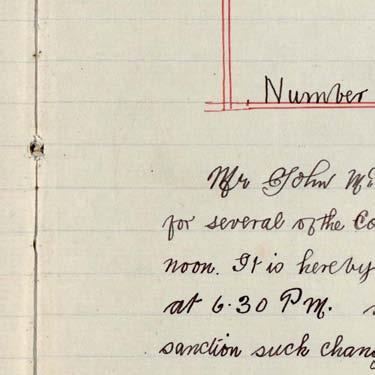 Number
Mr John Mc
for several of the Co
noon. It is hereby
at 6.30 P.M.
sanction such chang